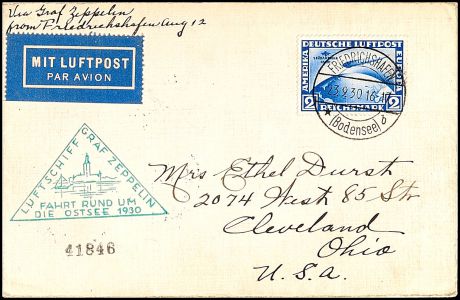 Via Graf Zeppelin
from Friedrichshafen Aug 12
MIT LUFTPOST
PAR AVION
DEUTSCHE LUFTPOST
AMERIKA
EUROPA
2 2
REICHSMARK
FRIEDRICHSHAFEN
9.30.16-17
(Bodensee) d
LUFTSCHIFF GRAF ZEPPELIN
FAHRT RUND UM
DIE OSTSEE 1930
41846
Mrs Ethel Durst
2074 West 85 Str
Cleveland
Ohio
U.S.A.